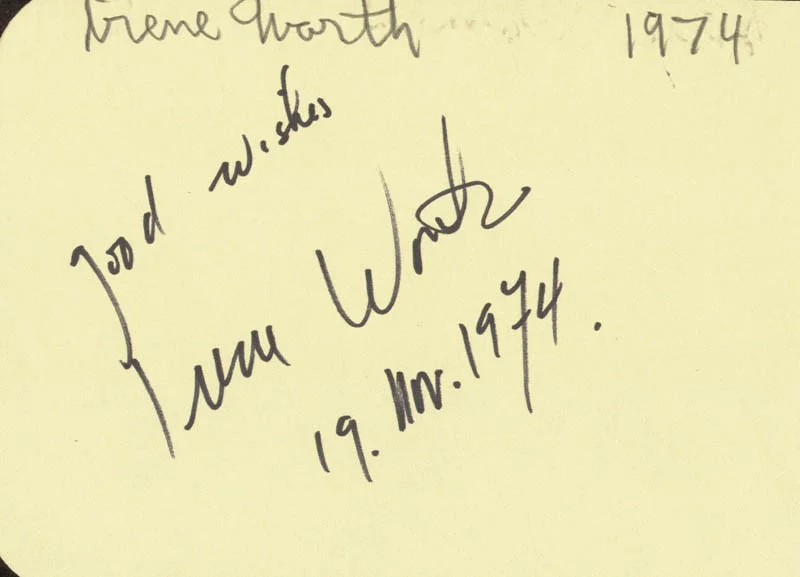 Irene Worth 1974
good wishes
Irene Worth
19. Nov. 1974.